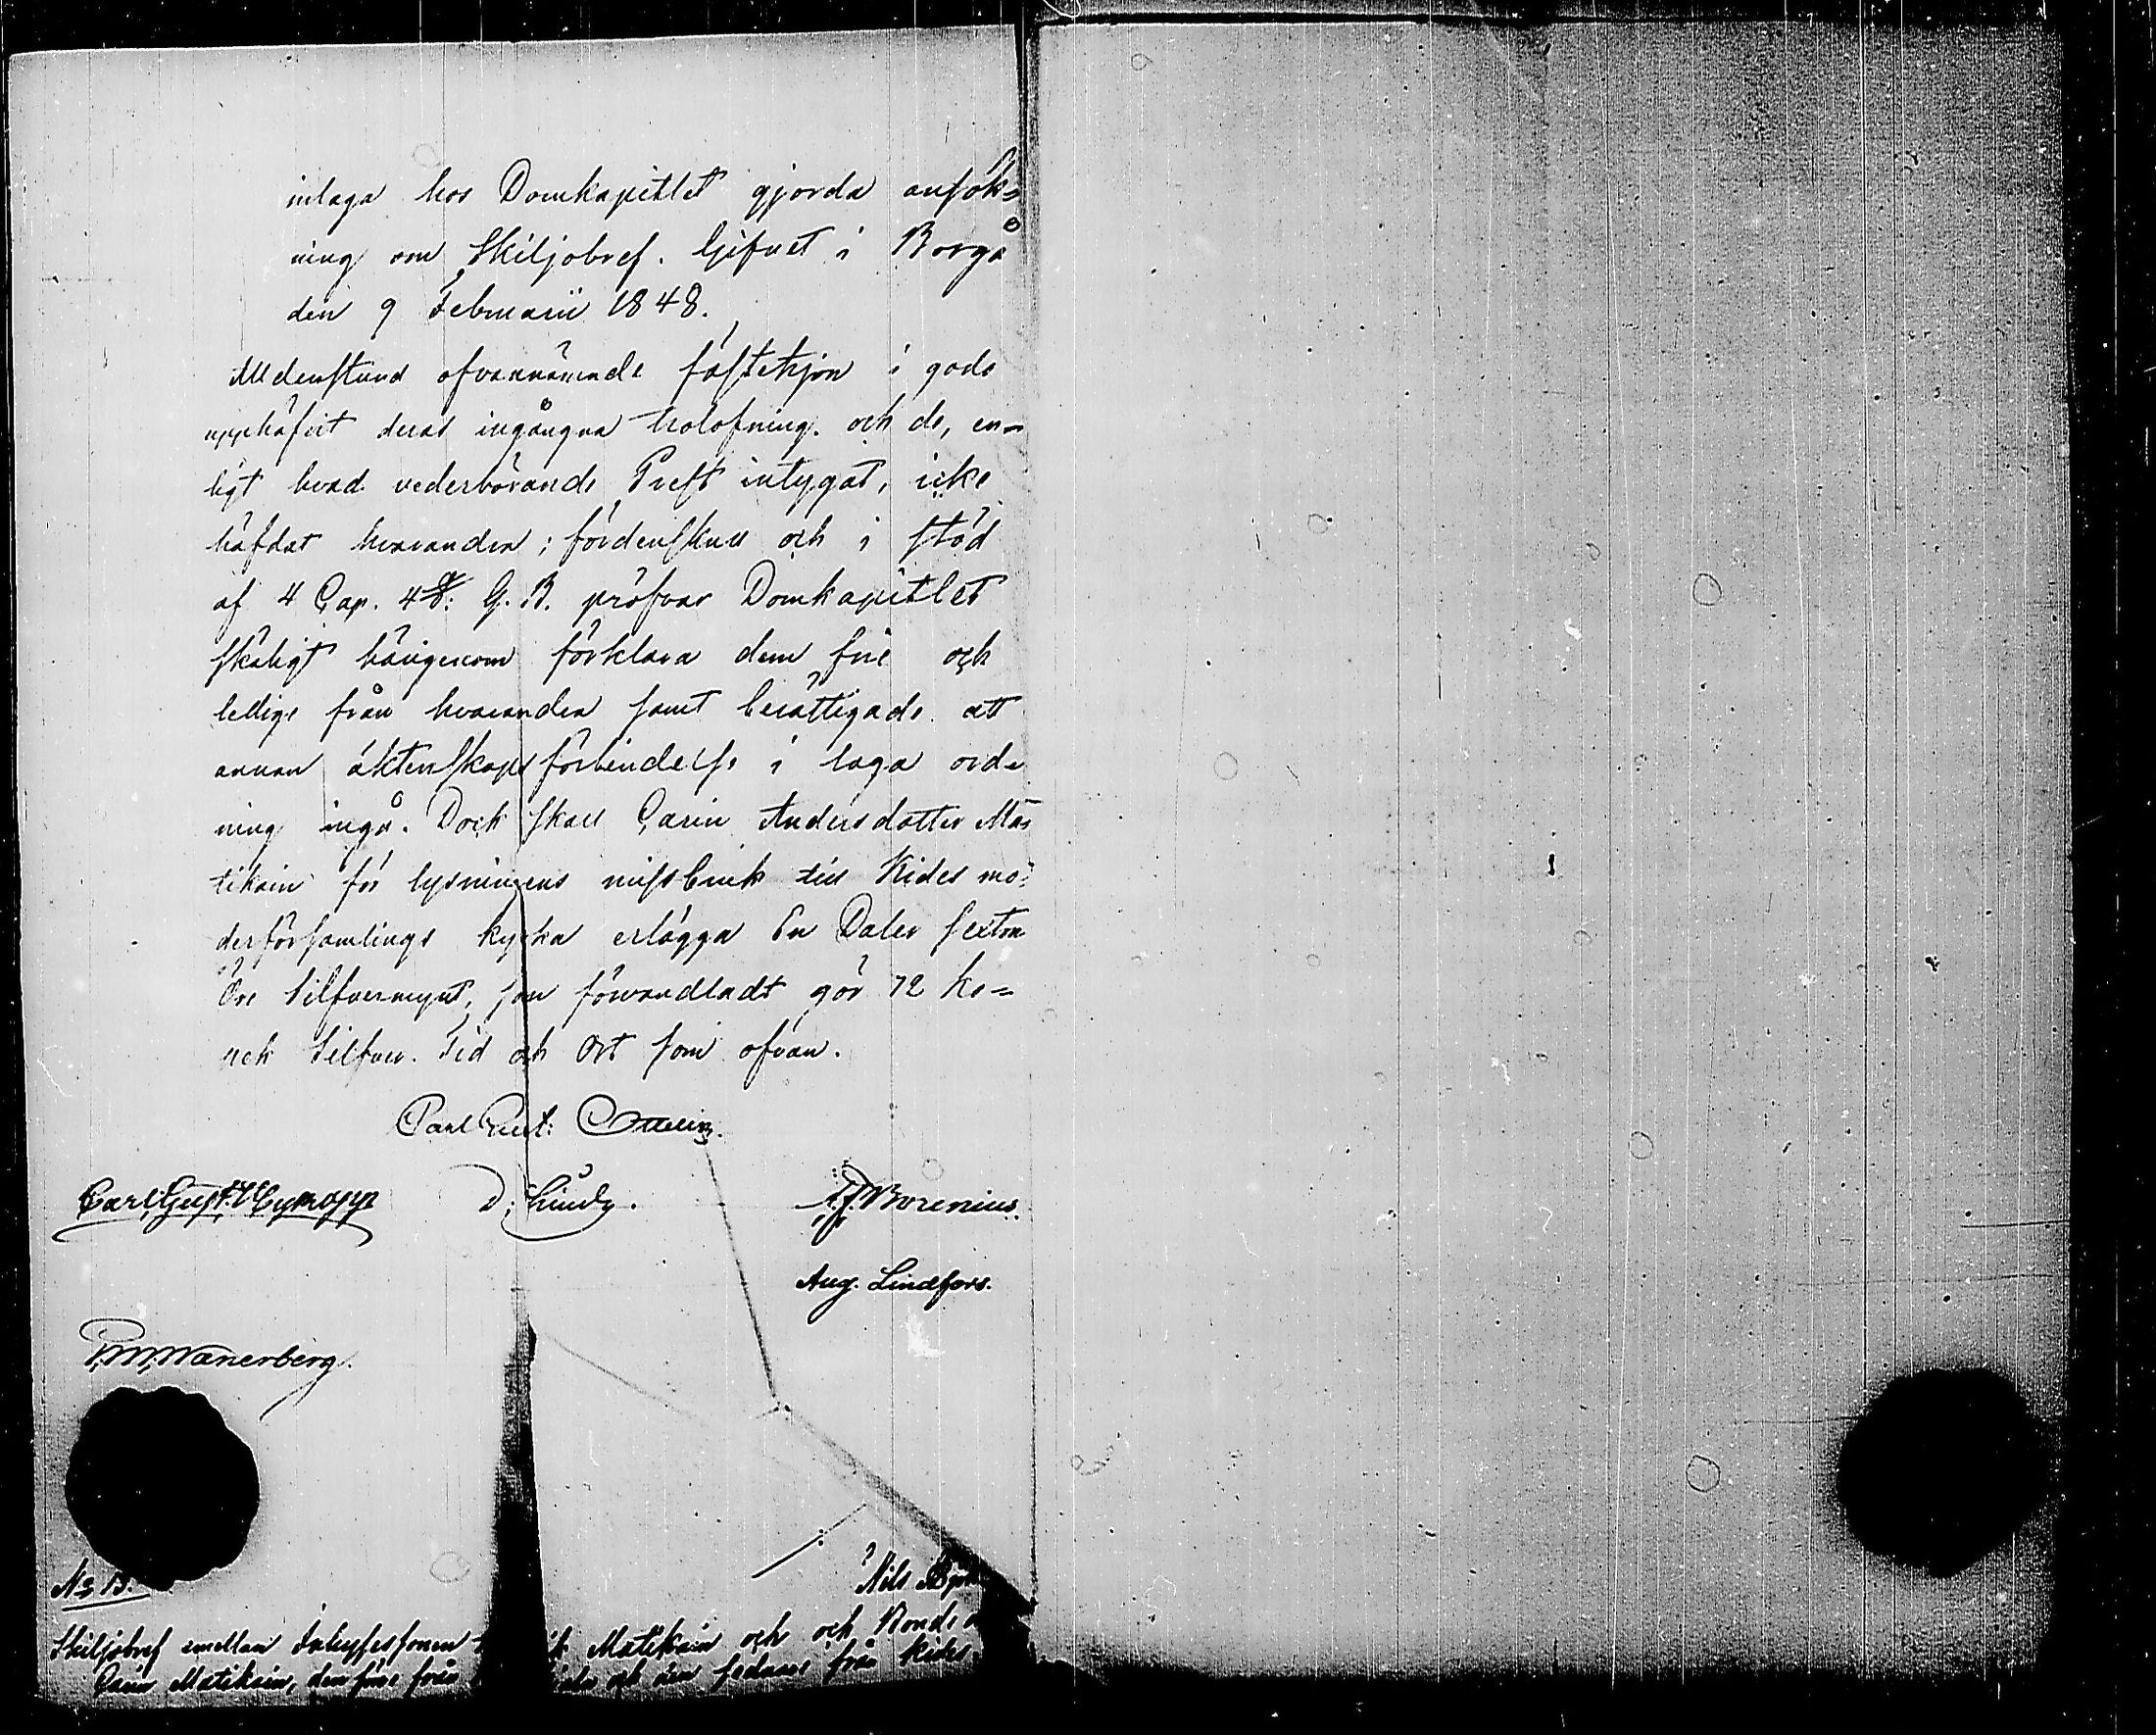 inlaga hos Domkapitlet gjorda ansök=
ning om Skiljobref. Gifvet i Borgå
den 9 Februarii 1848.
Alldenstund ofvannämnde fästehjon i godo
upphäfvit deras ingångna trolofning och de, en=
ligt hvad vederbörande Prest intygat, icke
häfdat hvarandra; fördenskull och i stöd
af 4 Cap. 4 §: G. B. pröfvar Domkapitlet
skäligt härigenom förklara dem frie och
ledige från hvarandra samt berättigade att
annan äktenskapsförbindelse i laga ord=
ning ingå. Dock skall Carin Andersdotter Ma=
tikain för lysningens missbruk till Kides mo=
derförsamlings kyrka erlägga En Daler sexton
Öre Silfvermynt, som förvandladt gör 72 ko=
pek Silfver. Tid och Ort som ofvan.
Carl Gust: Ottelin.
Carl Gust. D. A. J. Borenius.
Aug. Lindfors.
Wanerberg.
No 13. Nils
Skiljobref emellan Inhysessonen Matikain och och Bonde
Carin Matikain, den förre från och den sednare från Kides